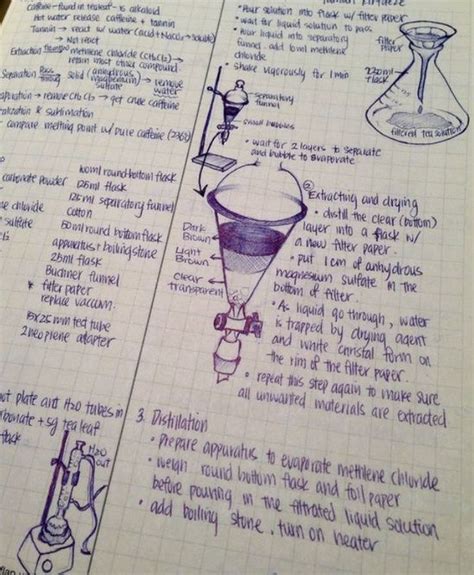 caffeine-found in tealeaf - is alkaloid
Hot water release caffeine + tannin
Tannin → react w/ water (acid + Na2CO3 → soluble)
→ Not react
Extraction methlene chloride (CH2Cl2) →
retain most other compound.
Separation solid (anhydrous → remove water
→ remove CH2Cl2 → get crude caffeine
& sublimation
compare melting point w/ pure caffeine
carbonate powder
chloride
sulfate
round bottom flask
125ml flask
125ml separatory funnel
cotton
50ml round bottom flask
apparatus + boiling stone
25ml flask
Buchner funnel
* filter paper
replice vaccum.
15x25mm test tube
2 neoprene adapter
hot plate and H2O tubes in
+ 5g tea leaf
flask
H2O
out
• Pour solution into flask w/ filter paper
• wait for liquid solution to pass
• Pour liquid into separatory
funnel. add 10ml methlene
chloride.
• shake vigorously for 1min
filter
paper
flask
filtered tea solution
separatory
funnel
small bubbles
• wait for 2 layers to separate
and bubble to evaporate
Dark
Brown
Light
Brown
clear
transparent
② Extracting and drying
• distill the clear (bottom)
layer into a flask w/
a new filter paper.
• put 1cm of anhydrous
magnesium sulfate in the
bottom of filter.
• As liquid go through, water
is trapped by drying agent
and white christal form on
the rim of the filter paper.
• repeat this step again to make sure
all unwanted materials are extracted
3. Distillation
• Prepare apparatus to evaporate methlene chloride
• weigh round bottom flask and foil paper
before pouring in the filtrated liquid solution
• add boiling stone, turn on heater